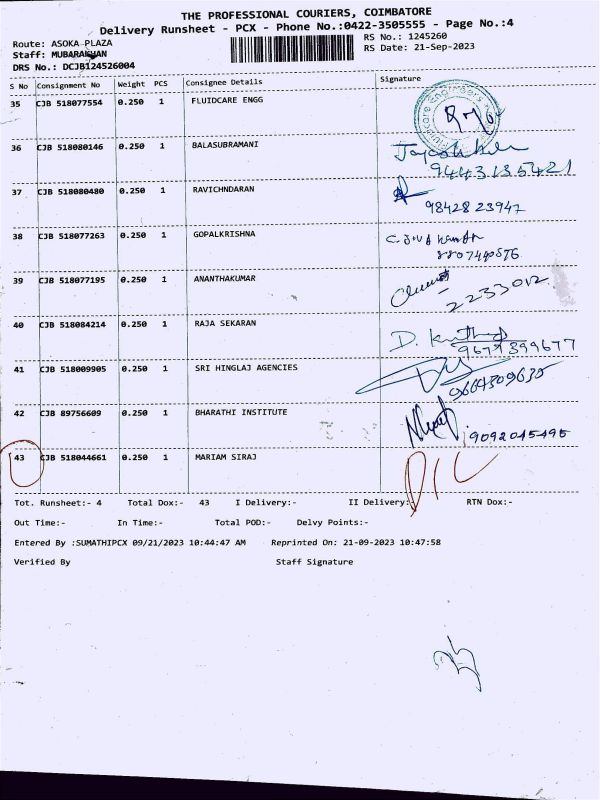 THE PROFESSIONAL COURIERS, COIMBATORE
Delivery Runsheet - PCX - Phone No.:0422-3505555 - Page No.:4
Route: ASOKA PLAZA
RS No.: 1245260
Staff: MUBARAKHAN
RS Date: 21-Sep-2023
DRS No.: DCJB124526004
S No Consignment No Weight PCS Consignee Details Signature
35 CJB 518077554 0.250 1 FLUIDCARE ENGG
36 CJB 518080146 0.250 1 BALASUBRAMANI
9443135421
37 CJB 518080480 0.250 1 RAVICHNDARAN
98428 23947
38 CJB 518077263 0.250 1 GOPALKRISHNA
8807490576
39 CJB 518077195 0.250 1 ANANTHAKUMAR
2233012
40 CJB 518084214 0.250 1 RAJA SEKARAN
9677399677
41 CJB 518009905 0.250 1 SRI HINGLAJ AGENCIES
42 CJB 89756609 0.250 1 BHARATHI INSTITUTE
9092045495
43 CJB 518044661 0.250 1 MARIAM SIRAJ
Tot. Runsheet:- 4 Total Dox:- 43 I Delivery:- II Delivery:- RTN Dox:-
Out Time:- In Time:- Total POD:- Delvy Points:-
Entered By :SUMATHIPCX 09/21/2023 10:44:47 AM Reprinted On: 21-09-2023 10:47:58
Verified By Staff Signature